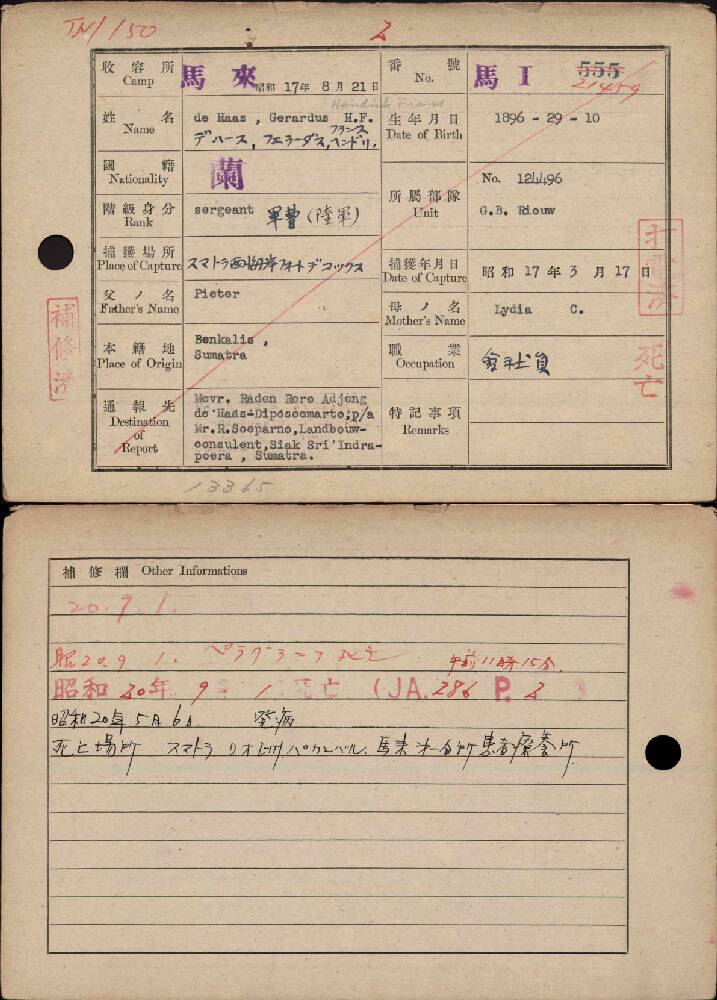 TM/150
2
收容所 Camp 馬來 昭和 17年 8月 21日
番號 No. 馬 I 555 21459
Hendrik Frans
姓名 Name de Haas , Gerardus H.F.
デハース, フェラーダス, フランス ヘンドリ,
生年月日 Date of Birth 1896 - 29 - 10
國籍 Nationality 蘭
階級身分 Rank sergeant 軍曹 (陸軍)
所屬部隊 Unit No. 124496
G.B. Riouw
捕獲場所 Place of Capture スマトラ西海岸フォートデコックス
捕獲年月日 Date of Capture 昭和 17年 3月 17日
父ノ名 Father's Name Pieter
母ノ名 Mother's Name Lydia C.
本籍地 Place of Origin Benkalis ,
Sumatra
職業 Occupation 会社員
通報先 Destination of Report Mevr. Raden Roro Adjeng
de Haas-Diposoemarto;p/a
Mr.R.Soeparno,Landbouw-
consulent,Siak Sri Indra-
poera , Sumatra.
特記事項 Remarks
補修済
打電済
死亡
13365
補修欄 Other Informations
20.9.1.
昭20.9 1. ペラグラニテ死亡 午前11時15分.
昭和20年 9 1 死亡 (JA.286 P. 2 )
昭和20年5月6日 発病
死亡場所 スマトラ リオ州パカンバル. 馬来 所患者療養所